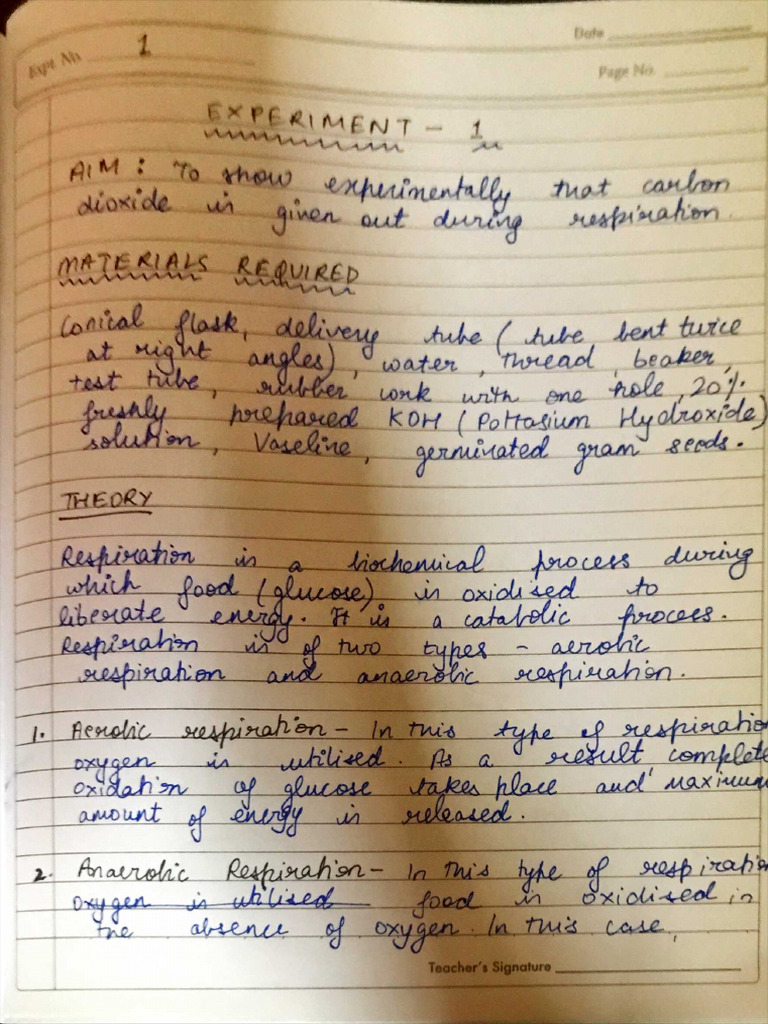 Date
Expt. No. 1
Page No.
EXPERIMENT - 1
AIM : To show experimentally that carbon
dioxide is given out during respiration.
MATERIALS REQUIRED
Conical flask, delivery tube ( tube bent twice
at right angles), water, thread, beaker,
test tube, rubber cork with one hole, 20%
freshly prepared KOH (Pottasium Hydroxide)
solution, Vaseline, germinated gram seeds.
THEORY
Respiration is a biochemical process during
which food (glucose) is oxidised to
liberate energy. It is a catabolic process.
Respiration is of two types - aerobic
respiration and anaerobic respiration.
1. Aerobic respiration - In this type of respiration
oxygen is utilised. As a result complete
oxidation of glucose takes place and maximum
amount of energy is released.
2. Anaerobic Respiration - In this type of respiration
oxygen is utilised food is oxidised in
the absence of oxygen. In this case,
Teacher's Signature